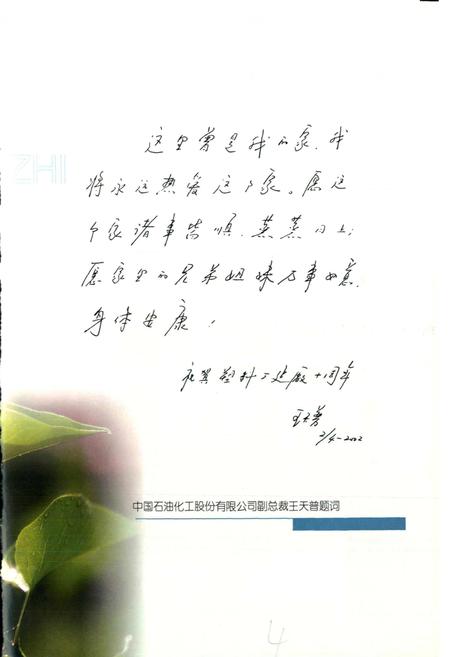 ZHI
这里曾是我的家，我
将永远热爱这个家。愿这
个家诸事皆顺、蒸蒸日上；
愿家里的兄弟姐妹万事如意、
身体安康！
祝贺塑料厂建厂十周年
王天普
2/4-2002
中国石油化工股份有限公司副总裁王天普题词
4